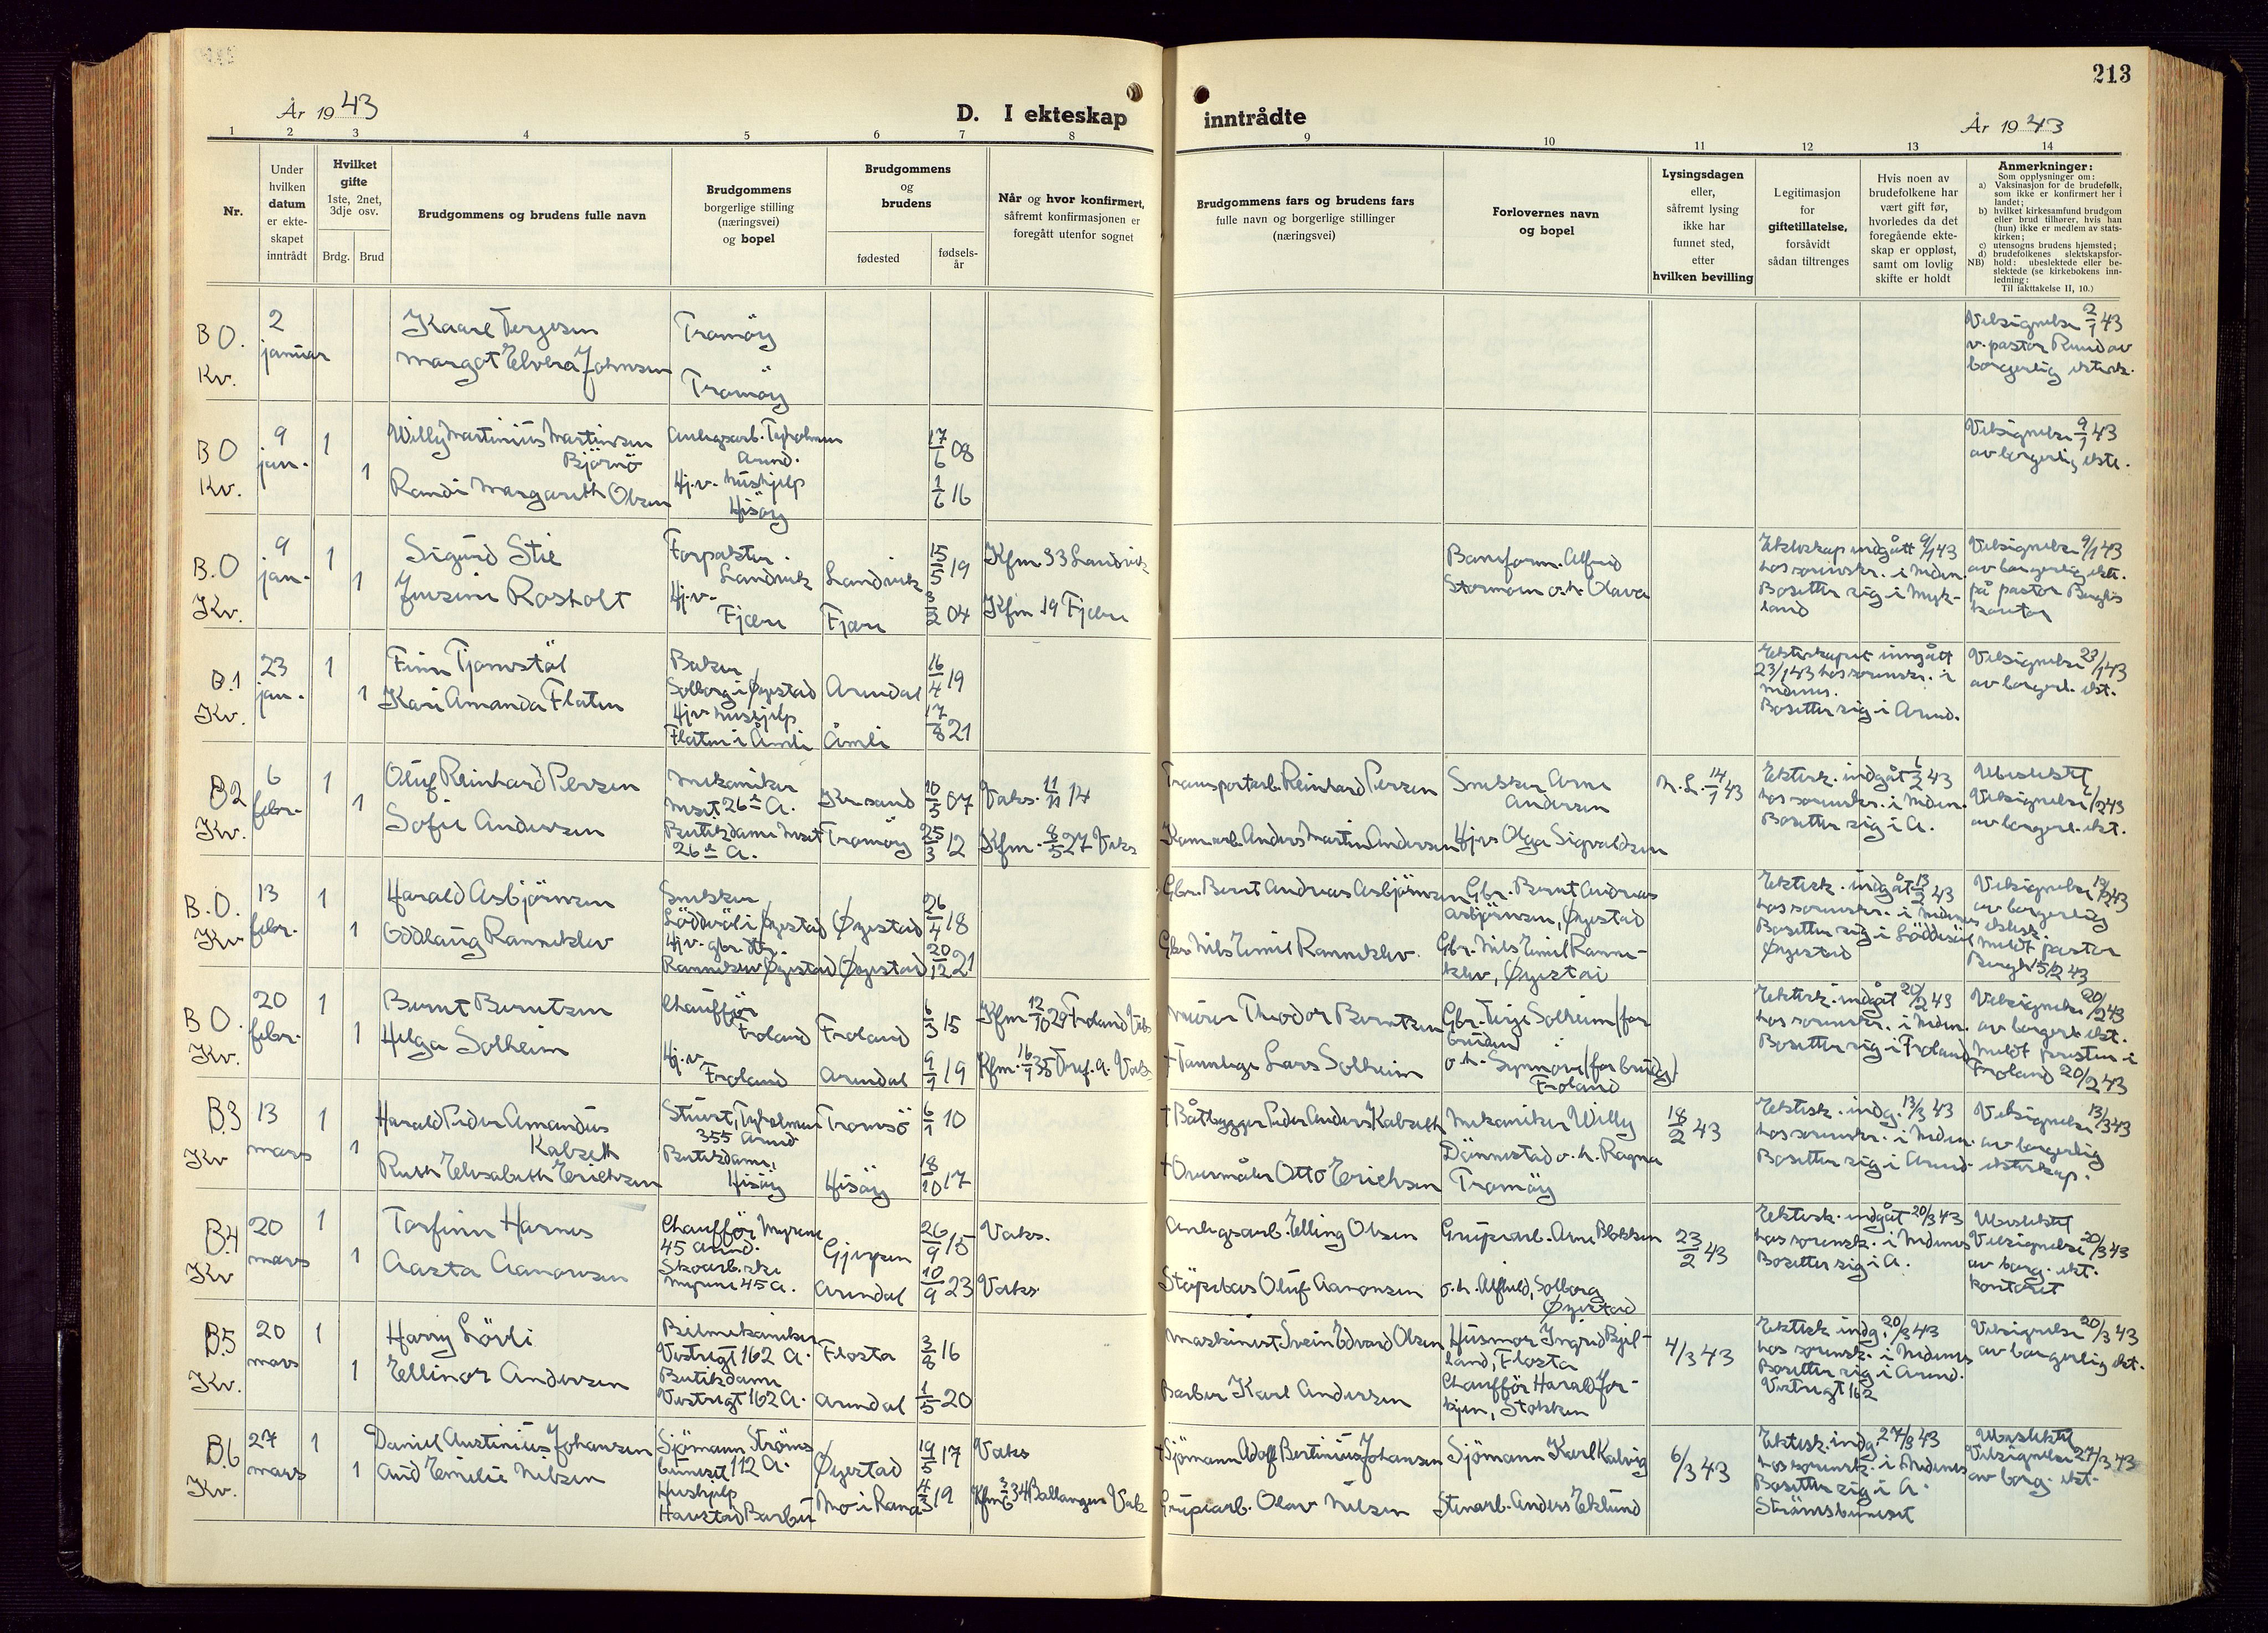 213
År 1943
D. I ekteskap inntrådte
År 1943
1 2 3 4 5 6 7 8 9 10 11 12 13 14
Nr.
Under
hvilken
datum
er ekte-
skapet
inntrådt
Hvilket
gifte
1ste, 2net,
3dje osv.
Brdg.
Brud
Brudgommens og brudens fulle navn
Brudgommens
borgerlige stilling
(næringsvei)
og bopel
Brudgommens
og
brudens
fødested
fødsels-
år
Når og hvor konfirmert,
såfremt konfirmasjonen er
foregått utenfor sognet
Brudgommens fars og brudens fars
fulle navn og borgerlige stillinger
(næringsvei)
Forlovernes navn
og bopel
Lysingsdagen
eller,
såfremt lysing
ikke har
funnet sted,
etter
hvilken bevilling
Legitimasjon
for
giftetillatelse,
forsåvidt
sådan tiltrenges
Hvis noen av
brudefolkene har
vært gift før,
hvorledes da det
foregående ekte-
skap er oppløst,
samt om lovlig
skifte er holdt
Anmerkninger:
Som opplysninger om:
a) Vaksinasjon for de brudefolk,
som ikke er konfirmert her i
landet;
b) hvilket kirkesamfund brudgom
eller brud tilhører, hvis han
(hun) ikke er medlem av stats-
kirken;
c) utensogns brudens hjemsted;
d) brudefolkenes slektskapsfor-
NB) hold: ubeslektede eller be-
slektede (se kirkebokens inn-
ledning:
Til iakttakelse II, 10.)
B O.
Kv.
2
januar
Kaare Terjesen
Margot Elvera Johnsen
Tromöy
Tromöy
Velsignelse 2/1 43
v. pastor Ruud av
borgerlig ektesk.
B O
Kv.
9
jan.
1
1
Willy Martinius Martinsen
Björnö
Randi Margareth Olsen
Anlegsarb. Tyholmen
Arend.
Hj.v. hushjelp
Hisöy
17/6 08
1/6 16
Velsignelse 9/1 43
av borgerlig ekte.
B.O
Kv.
9
jan.
1
1
Sigurd Stie
Jensine Rosholt
Forpakter.
Landvik
Hj.v.
Fjære
Landvik
Fjære
15/5 19
3/2 04
Kfm. 33 Landvik
Kfm 19 Fjære
Baneform. Alfred
Stormoen o.h. Olava
Ekteskap indgått 9/1 43
hos sorenskr. i Neden.
Bosetter sig i Myk-
land
Velsignelse 9/1 43
av borgerlig ekt.
på pastor Berghs
kontor
B.1
Kv.
23
jan.
1
1
Finn Tjomstöl
Kari Amanda Flaten
Baker
Solborg i Øyestad
Hjv hushjelp
Flaten i Åmli
Arendal
Åmli
16/4 19
17/8 21
Ekteskapet inngått
23/1 43 hos sorenskr. i
Nedenes.
Bosetter sig i Arend.
Velsignelse 23/1 43
av borgerl. ekt.
B2
Kv.
6
febr.
1
1
Oluf Reinhard Persen
Sofie Andersen
Mekaniker
Meset 26 A.
Butikdame Meset
26 A.
Kr. sand
Tromöy
10/5 07
25/3 12
Vaks. 11/11 14
Kfm. 8/5 27 Vaks
Transportarb. Reinhard Persen
Kom.arb. Anders Martin Andersen
Snekker Arne
Andersen
Hjv. Olga Sigvaldsen
N. L. 14/1 43
Ektesk. indgåt 6/2 43
hos sorenskr. i Neden.
Bosetter sig i A.
Ubeslektet
Velsignelse 6/2 43
av borgerl. ekt.
B.O.
Kv
13
febr.
1
1
Harald Asbjörnsen
Oddlaug Ranneklev
Snekker
Löddesöl i Øyestad
Hj.v. gbr. dtr.
Ranneklev Øyestad
Øyestad
Øyestad
26/4 18
20/12 21
Gbr. Bernt Andreas Asbjörnsen
Gbr. Nils Emil Ranneklev.
Gbr. Bernt Andreas
Asbjörnsen, Øyestad
Gbr. Nils Emil Ranne-
klev, Øyestad
Ektesk. indgåt 13/2 43
hos sorenskr. i Nedenes
Bosetter sig i Löddesöl
Øyestad
Velsignelse 13/2 43
av borgerlig
ektesk.
Meldt pastor
Bergh 15/2 43
B O.
Kv.
20
febr.
1
1
Bernt Berntsen
Helga Solheim
Chauffør
Froland
Hj.v.
Froland
Froland
Arendal
6/3 15
9/9 19
Kfm. 12/10 29 Froland Vaks
Kfm. 16/9 35 Tref. A. Vaks
Murer Theodor Berntsen
+ Tannlege Lars Solheim
Gbr. Terje Solheim (for
bruden)
o.h. Synnöve (for brudg.)
Froland
Ektesk. indgåt 20/2 43
hos sorenskr. i Neden.
Bosetter sig i Froland
Velsignelse 20/2 43
av borgerl. ekt.
Meldt presten i
Froland 20/2 43
B.3
Kv
13
mars
1
1
Harald Peder Amandus
Kalseth
Ruth Elisabeth Erichsen
Stuert, Tyholmen
355 Arend
Butikdame,
Hisöy
Tromsö
Hisöy
6/1 10
18/10 17
+ Båtbygger Peder Anders Kalseth
+ Overmåler Otto Erichsen
Mekaniker Willy
Dännestad o.h. Ragna
Tromöy
18/2 43
Ektesk. indg. 13/3 43
hos sorenskr. i Neden.
Bosetter sig i Arend.
Velsignelse 13/3 43
av borgerlig
ekteskap.
B.4
Kv
20
mars
1
1
Torfinn Harnes
Aasta Aanonsen
Chauffør Myrene
45 Arend.
Skoarb.ske
Myrene 45 A.
Gjerpen
Arendal
26/9 15
10/9 23
Vaks.
Vaks.
Anlegsarb. Elling Olsen
Oluf Aanonsen
Grubearb. Arne Blokken
o.h. Alfhild, Solborg
Øyestad
23/2 43
Ektesk. indgåt 20/3 43
hos sorensk. i Nedenes
Bosetter sig i A.
Ubeslektet
Velsignelse 20/3 43
av borg. ekt.
kontoret
B.5
Kv.
20
mars
1
1
Harry Lövli
Ellinor Andersen
Bilmekaniker
Vestregt 162 A.
Butikdame
Vestregt 162 A.
Flosta
Arendal
3/8 16
1/5 20
Maskinist Svein Edvard Olsen
Barber Karl Andersen
Husmor Ingrid Bjel-
land, Flosta
Chauffør Harald Jor-
kjen, Stokken
4/3 43
Ektesk indg. 20/3 43
hos sorensk. i Nedenes
Bosetter sig i Arend.
Vestregt 162
Velsignelse 20/3 43
av borgerlig ekt.
B.6
Kv.
27
mars
1
1
Daniel Austinius Johansen
Aud Emilie Nilsen
Sjömann Ströms-
buneset 112 A.
Hushjelp
Havstad Barbu
Øyestad
Mo i Rana
19/5 17
4/3 19
Vaks
Kfm 3/6 34 Ballangen Vak
+ Sjömann Adolf Bertinius Johansen
Grubearb. Olav Nilsen
Sjömann Karl Kalvig
Stenarb. Anders Eklund
6/3 43
Ektesk. indg. 27/3 43
hos sorensk. i Nedenes
Bosetter sig i A.
Strömsbuneset
Ubeslektet
Velsignelse 27/3 43
av borg. ekt.